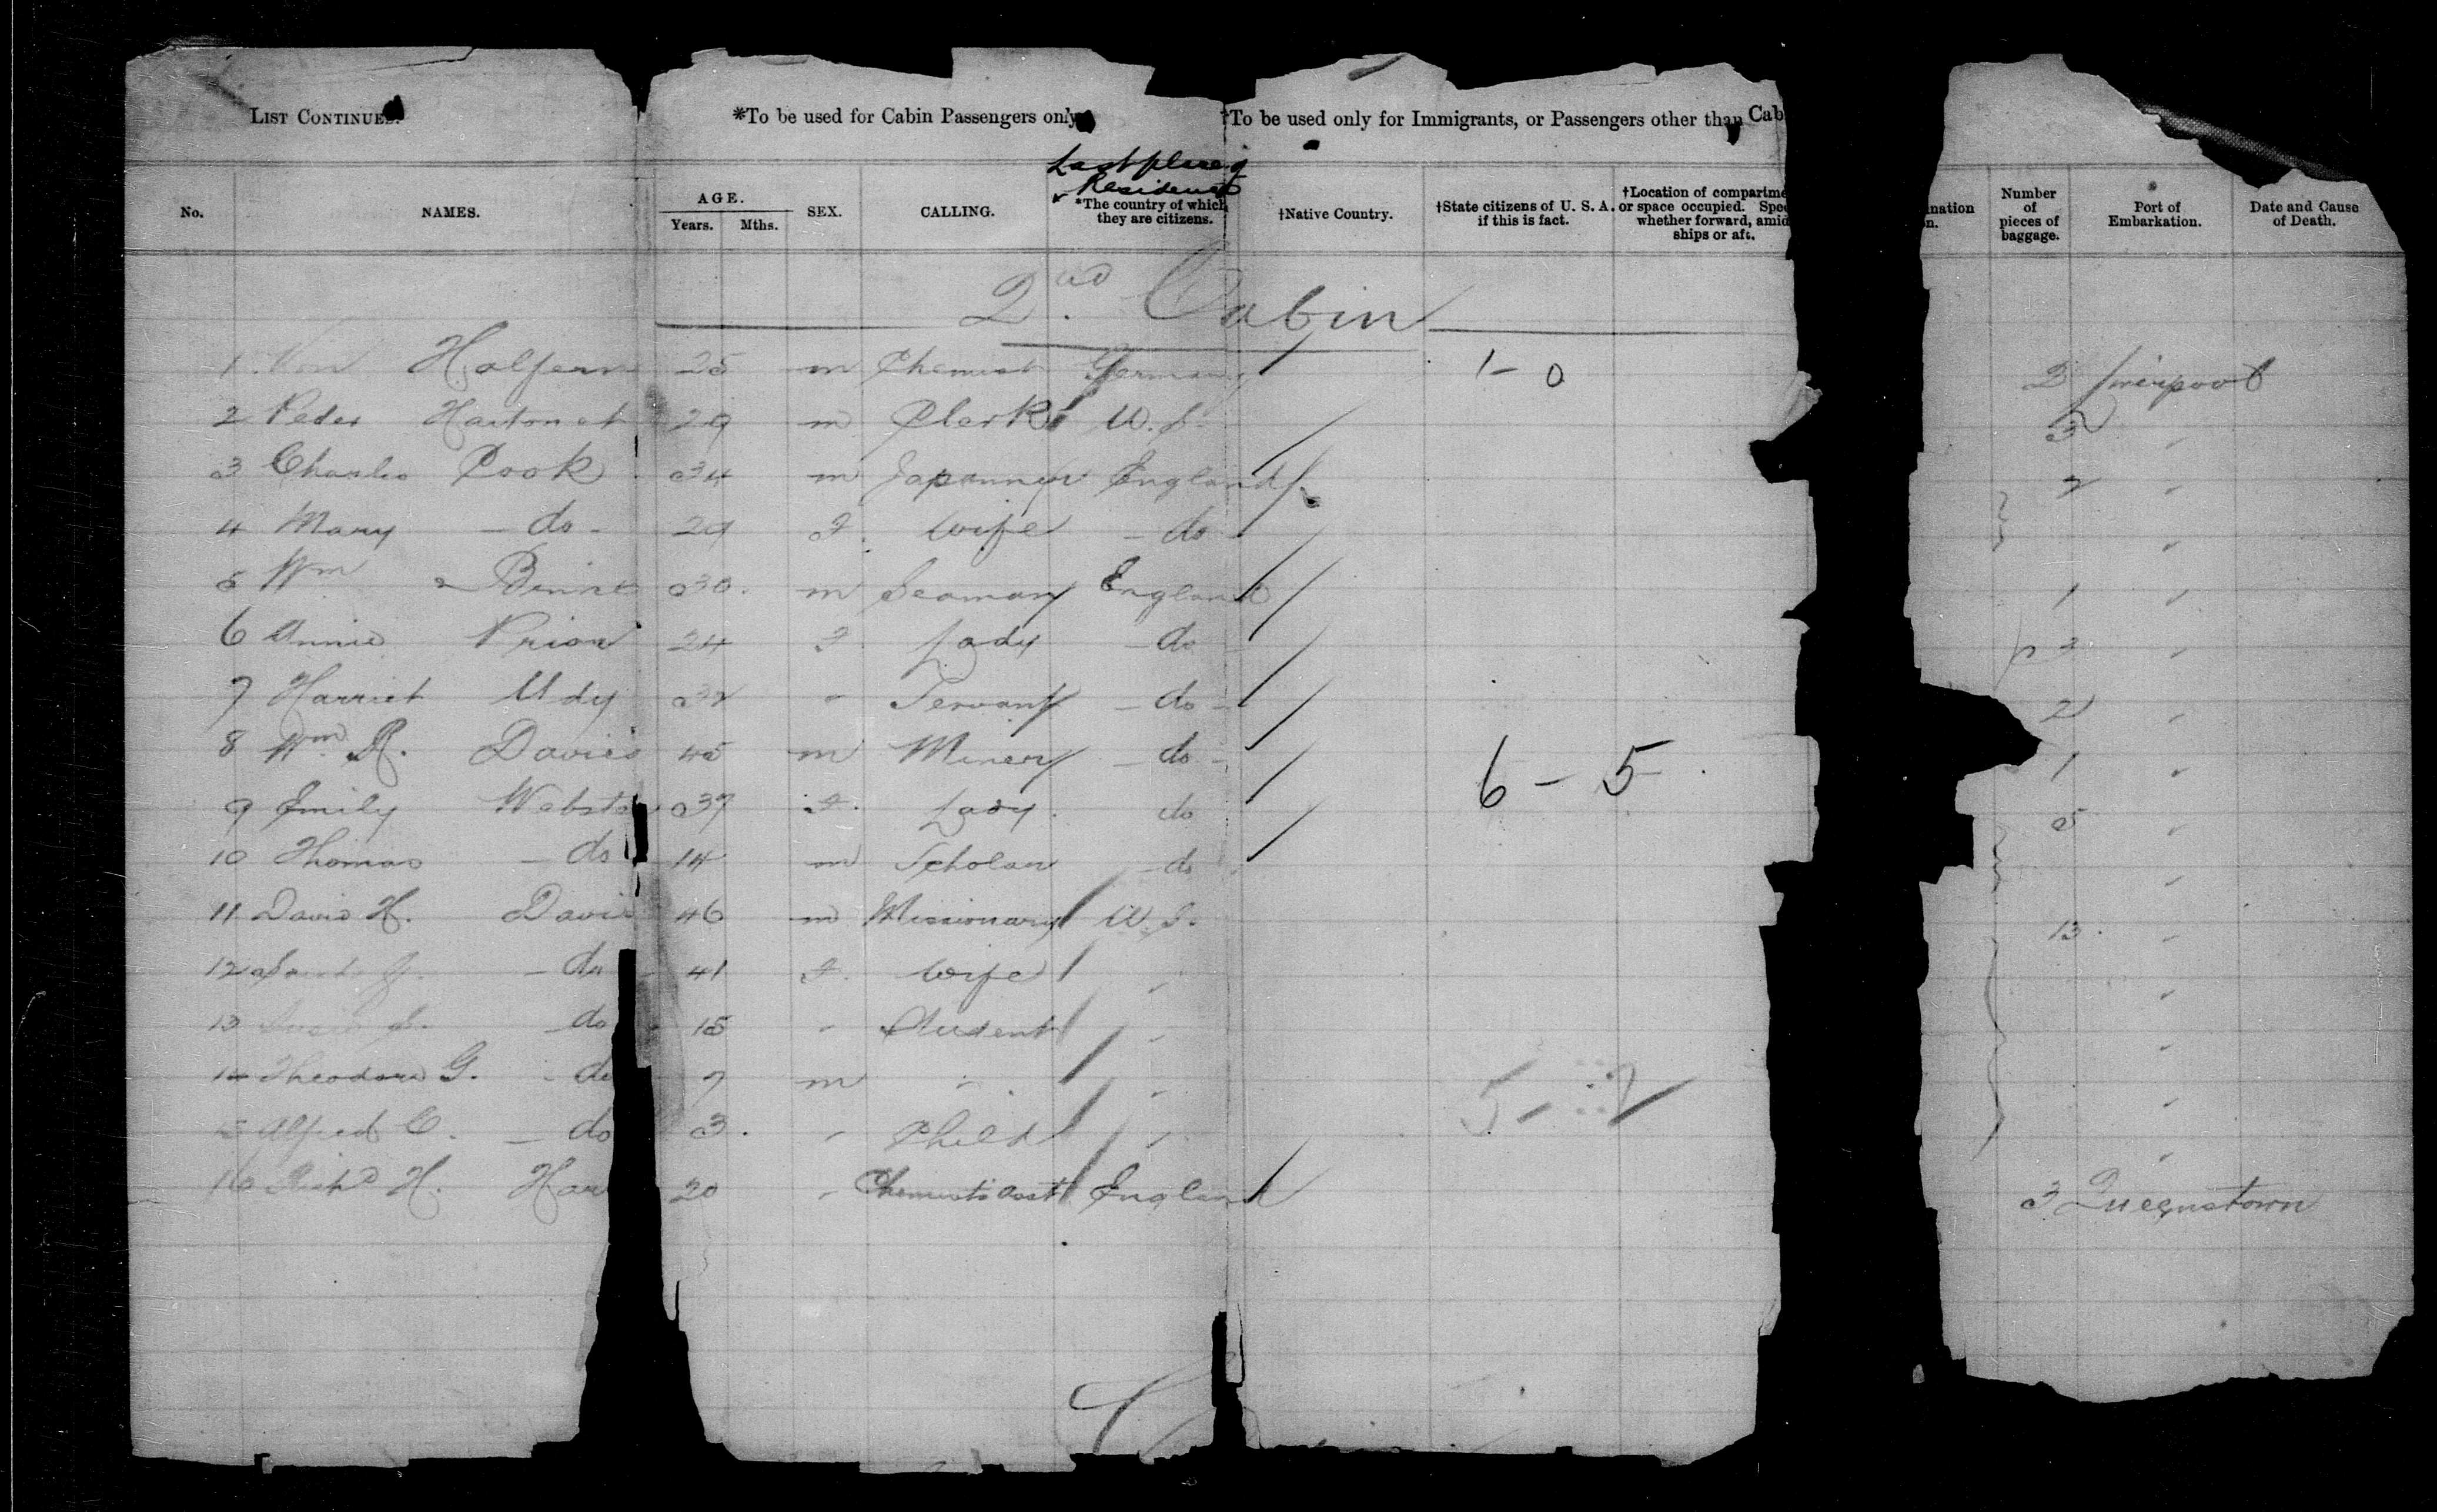 LIST CONTINUED. *To be used for Cabin Passengers only †To be used only for Immigrants, or Passengers other than Cab
Last place of
Residence
No. NAMES. AGE. Years. Mths. SEX. CALLING. *The country of which they are citizens. †Native Country. †State citizens of U. S. A. if this is fact. †Location of compartme or space occupied. Spec whether forward, amid ships or aft. nation n. Number of pieces of baggage. Port of Embarkation. Date and Cause of Death.
2nd. Cabin
1 Wm Halpern 25 m Chemist Germany 1-0 2 Liverpool
2 Peder 29 m Clerk U.S. 3 "
3 Charles Cook 34 m Japanner England 2 "
4 Mary - do - 29 F. Wife - do "
5 Wm 30 m Seaman England 1 "
6 Annie Prior 24 F. Lady - do 3 "
7 Harriet Udy 32 " Servant - do - 2 "
8 Wm R. Davies 45 m Miner - do - 6 - 5 1 "
9 Emily Webste 37 F. Lady do 5 "
10 Thomas - do 14 m Scholar - do "
11 David H. Davis 46 m Missionary U.S. 13 "
12 - do 41 F. Wife " "
13 - do 15 " Student " "
14 Theodore G. - do 7 m " " 5 - 2 "
15 Alfred C. - do 3 " Child " "
16 Richd H. Har 20 " Chemists asst England 3 Queenstown